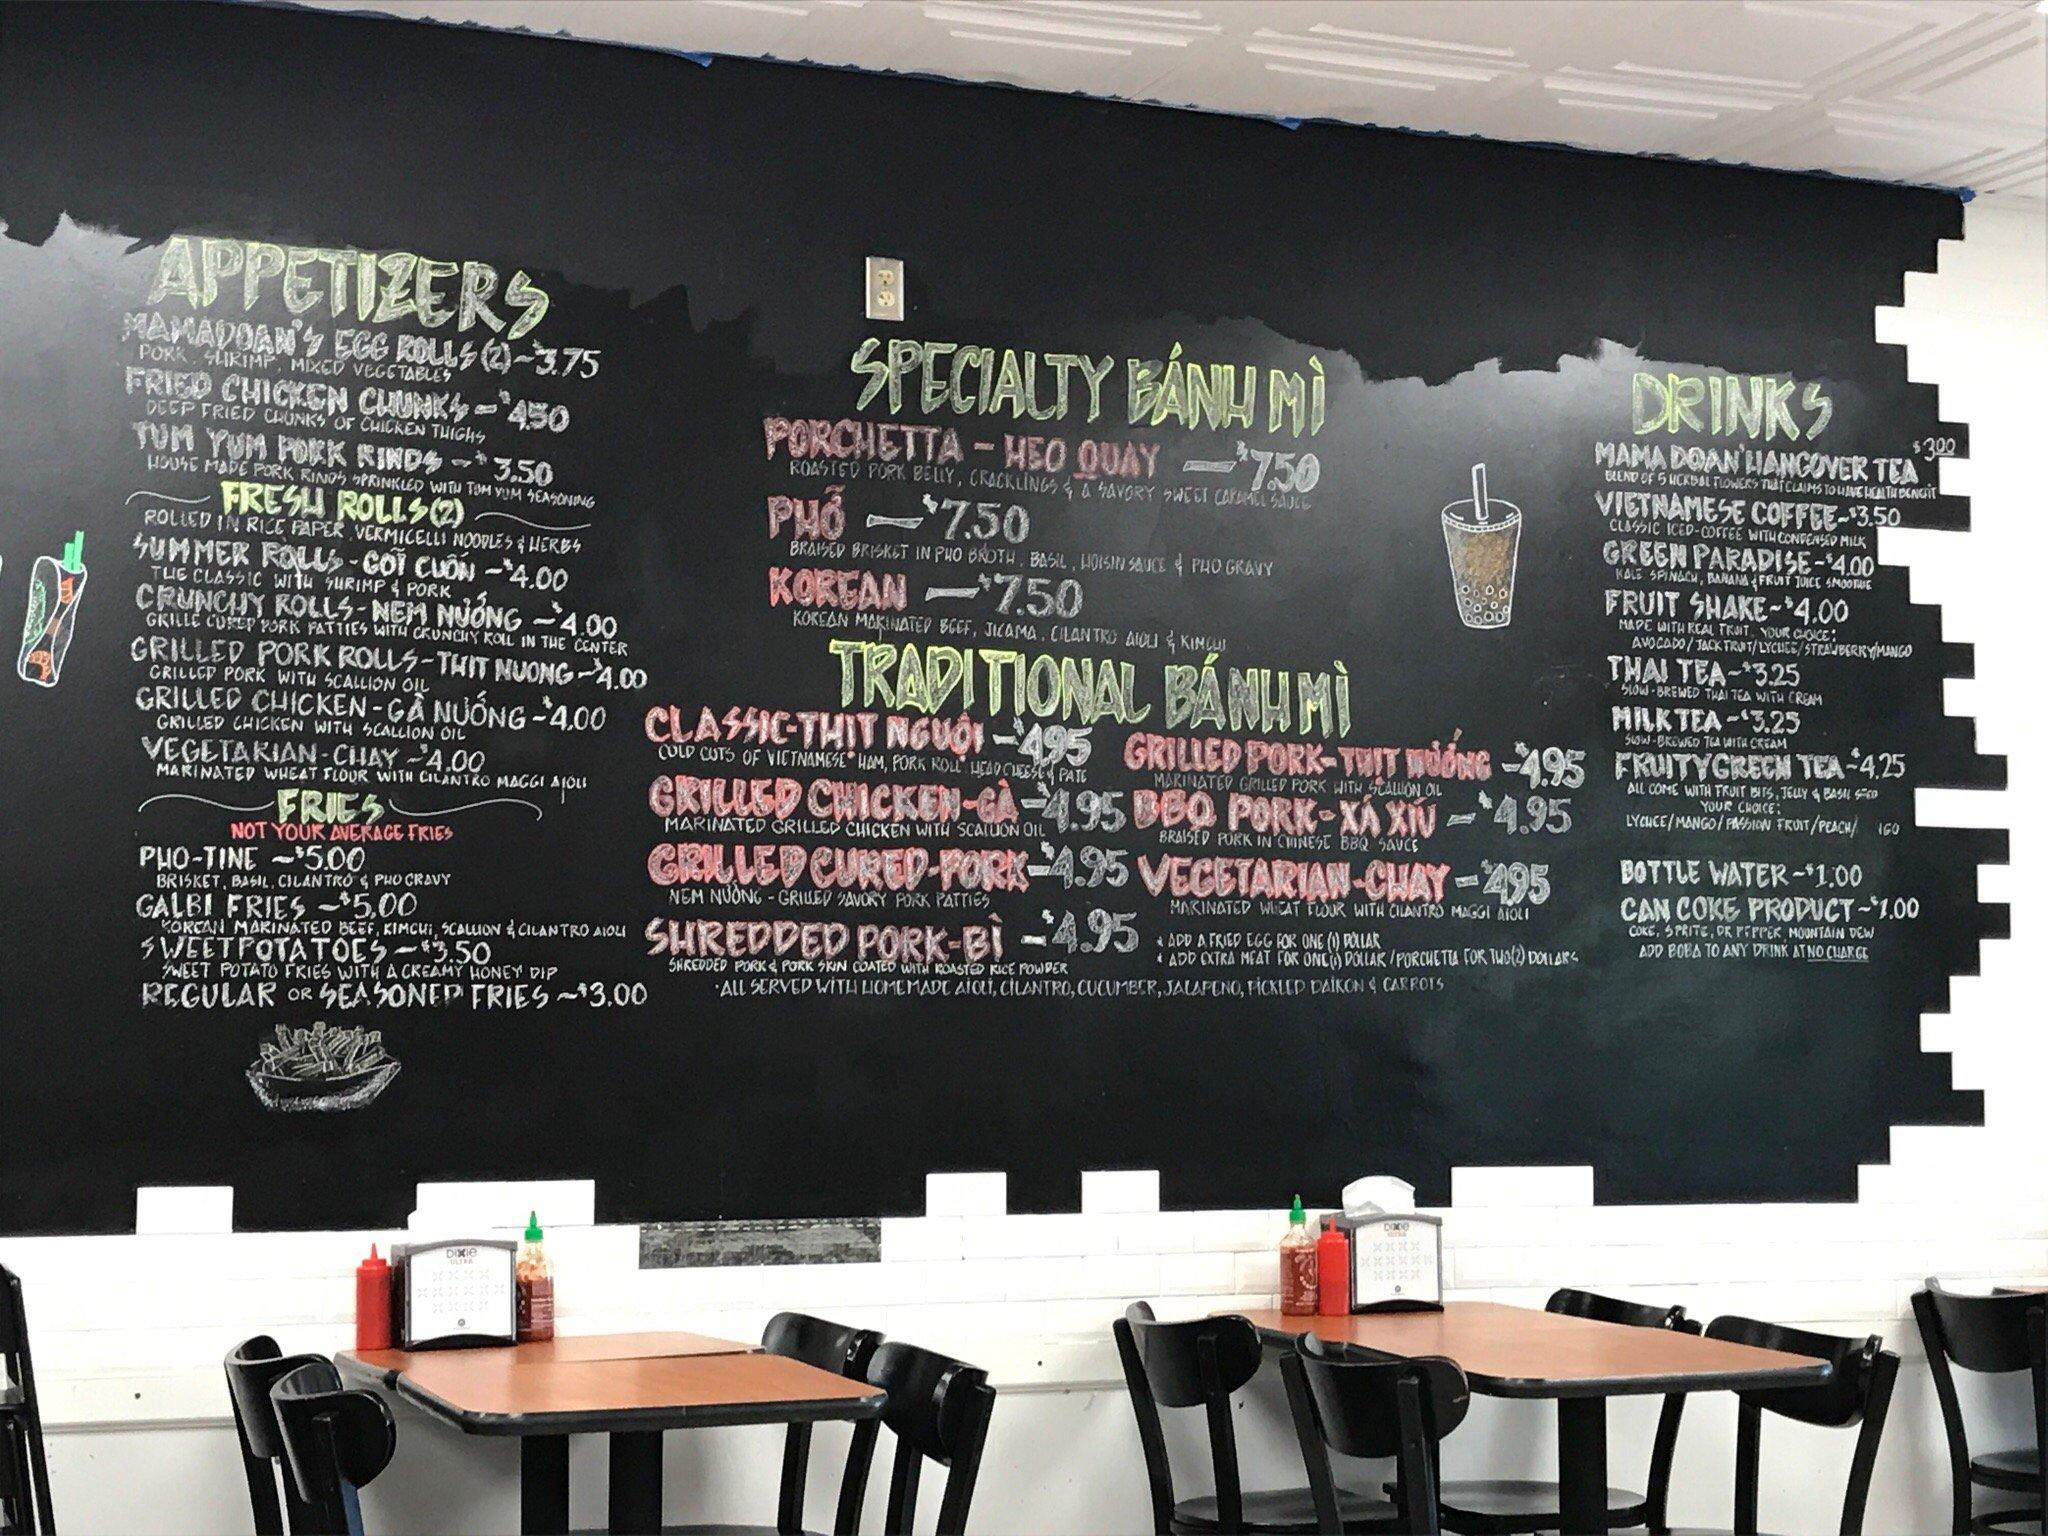 APPETIZERS
MAMADOAN'S EGG ROLLS (2) ~ $3.75
PORK, SHRIMP, MIXED VEGETABLES
FRIED CHICKEN CHUNKS ~ $4.50
DEEP FRIED CHUNKS OF CHICKEN THIGHS
TUM YUM PORK RINDS ~ $3.50
HOUSE MADE PORK RINDS SPRINKLED WITH TUM YUM SEASONING
FRESH ROLLS (2)
ROLLED IN RICE PAPER, VERMICELLI NOODLES & HERBS
SUMMER ROLLS - GÕI CUỐN ~ $4.00
THE CLASSIC WITH SHRIMP & PORK
CRUNCHY ROLLS - NEM NƯỚNG ~ $4.00
GRILLE CURED PORK PATTIES WITH CRUNCHY ROLL IN THE CENTER
GRILLED PORK ROLLS - THIT NUONG ~ $4.00
GRILLED PORK WITH SCALLION OIL
GRILLED CHICKEN - GÀ NƯỚNG ~ $4.00
GRILLED CHICKEN WITH SCALLION OIL
VEGETARIAN - CHAY ~ $4.00
MARINATED WHEAT FLOUR WITH CILANTRO MAGGI AIOLI
FRIES
NOT YOUR AVERAGE FRIES
PHO-TINE ~ $5.00
BRISKET, BASIL, CILANTRO & PHO GRAVY
GALBI FRIES ~ $5.00
KOREAN MARINATED BEEF, KIMCHI, SCALLION & CILANTRO AIOLI
SWEET POTATOES ~ $3.50
SWEET POTATO FRIES WITH A CREAMY HONEY DIP
REGULAR OR SEASONED FRIES ~ $3.00
SPECIALTY BÁNH MÌ
PORCHETTA - HEO QUAY — $7.50
ROASTED PORK BELLY, CRACKLINGS & A SAVORY SWEET CARAMEL SAUCE
PHỞ — $7.50
BRAISED BRISKET IN PHO BROTH, BASIL, HOISIN SAUCE & PHO GRAVY
KOREAN — $7.50
KOREAN MARINATED BEEF, JICAMA, CILANTRO AIOLI & KIMCHI
TRADITIONAL BÁNH MÌ
CLASSIC - THIT NGUỘI — $4.95
COLD CUTS OF VIETNAMESE HAM, PORK ROLL, HEAD CHEESE & PATE
GRILLED CHICKEN - GÀ — $4.95
MARINATED GRILLED CHICKEN WITH SCALLION OIL
GRILLED CURED-PORK — $4.95
NEM NƯỚNG - GRILLED SAVORY PORK PATTIES
SHREDDED PORK - BÌ — $4.95
SHREDDED PORK & PORK SKIN COATED WITH ROASTED RICE POWDER
GRILLED PORK - THIT NƯỚNG — $4.95
MARINATED GRILLED PORK WITH SCALLION OIL
BBQ PORK - XÁ XÍU — $4.95
BRAISED PORK IN CHINESE BBQ SAUCE
VEGETARIAN - CHAY — $4.95
MARINATED WHEAT FLOUR WITH CILANTRO MAGGI AIOLI
* ADD A FRIED EGG FOR ONE (1) DOLLAR
* ADD EXTRA MEAT FOR ONE (1) DOLLAR / PORCHETTA FOR TWO (2) DOLLARS
*ALL SERVED WITH HOMEMADE AIOLI, CILANTRO, CUCUMBER, JALAPENO, PICKLED DAIKON & CARROTS
DRINKS
MAMA DOAN' HANGOVER TEA $3.00
BLEND OF 5 HERBAL FLOWERS THAT CLAIMS TO HAVE HEALTH BENEFIT
VIETNAMESE COFFEE ~ $3.50
CLASSIC ICED-COFFEE WITH CONDENSED MILK
GREEN PARADISE ~ $4.00
KALE, SPINACH, BANANA & FRUIT JUICE SMOOTHIE
FRUIT SHAKE ~ $4.00
MADE WITH REAL FRUIT, YOUR CHOICE:
AVOCADO/JACKFRUIT/LYCHEE/STRAWBERRY/MANGO
THAI TEA ~ $3.25
SLOW-BREWED THAI TEA WITH CREAM
MILK TEA ~ $3.25
SLOW-BREWED TEA WITH CREAM
FRUITY GREEN TEA ~ $4.25
ALL COME WITH FRUIT BITS, JELLY & BASIL SEED
YOUR CHOICE:
LYCHEE/MANGO/PASSION FRUIT/PEACH/
BOTTLE WATER ~ $1.00
CAN COKE PRODUCT ~ $1.00
COKE, SPRITE, DR PEPPER, MOUNTAIN DEW
ADD BOBA TO ANY DRINK AT NO CHARGE
DIXIE
ULTRA
DIXIE
ULTRA